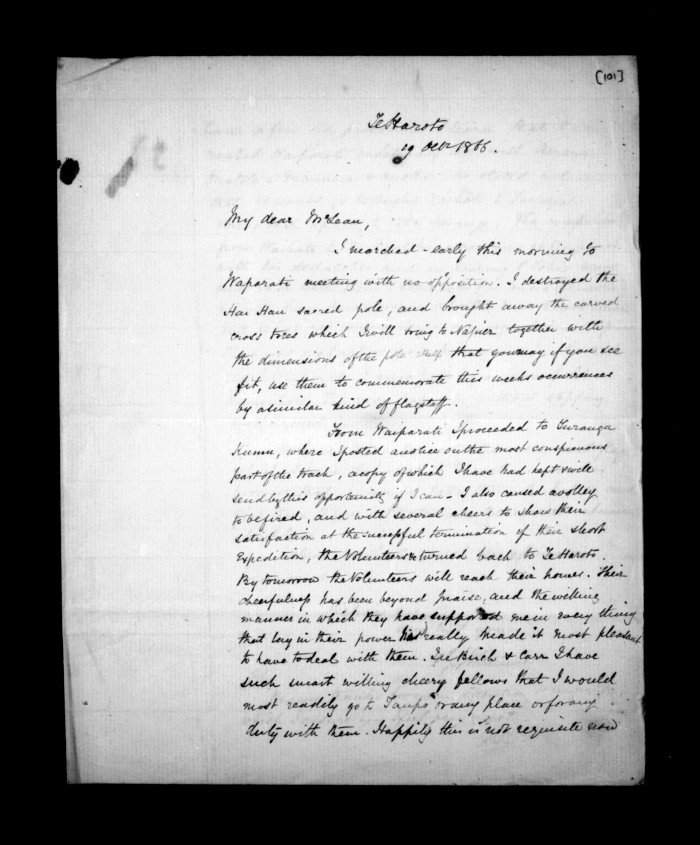 [101]
Te Haroto
19 Octr 1866.
My dear McLean,
I marched early this morning to
Waparati meeting with no opposition. I destroyed the
Hau Hau sacred pole, and brought away the carved
cross trees which I will bring to Napier together with
the dimensions of the pole itself that you may if you see
fit, use them to commemorate this weeks occurrences
by a similar kind of flagstaff.
From Waiparati I proceeded to Turanga
Kumu, where I posted a notice on the most conspicuous
part of the track, a copy of which I have had kept & will
send by this opportunity if I can - I also caused a volley
to be fired, and with several cheers to shew their
satisfaction at the successful termination of their short
Expedition, the Volunteers returned back to Te Haroto.
By tomorrow the Volunteers will reach their homes. Their
cheerfulness has been beyond praise, and the willing
manner in which they have supported me in every thing
that lay in their power has really made it most pleasant
to have to deal with them. In Birch & Carr I have
such smart willing cheery fellows that I would
most readily go to Taupo or any place or for any
duty with them. Happily this is not requisite now